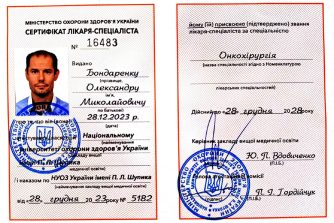 МІНІСТЕРСТВО ОХОРОНИ ЗДОРОВ'Я УКРАЇНИ
СЕРТИФІКАТ ЛІКАРЯ-СПЕЦІАЛІСТА
№ 16483
Видано
Бондаренку
(прізвище)
Олександру
(ім'я)
Миколайовичу
(по батькові)
28.12.2023 р.
(дата)
Національному
(найменування
університеті охорони здоров'я України
імені П. Л. Шупика
і наказом по НУОЗ України імені П. Л. Шупика
(найменування закладу вищої медичної освіти)
від 28. грудня 2023 року № 5182
йому (їй) присвоєно (підтверджено) звання
лікаря-спеціаліста за спеціальністю
Онкохірургія
(назва спеціальності згідно з Номенклатурою
лікарських спеціальностей)
Дійсний до 28 грудня 2028 року
Керівник закладу вищої медичної освіти
Ю. П. Вдовиченко
(П.І.Б.)
П. І. Гордійчук
(П.І.Б.)